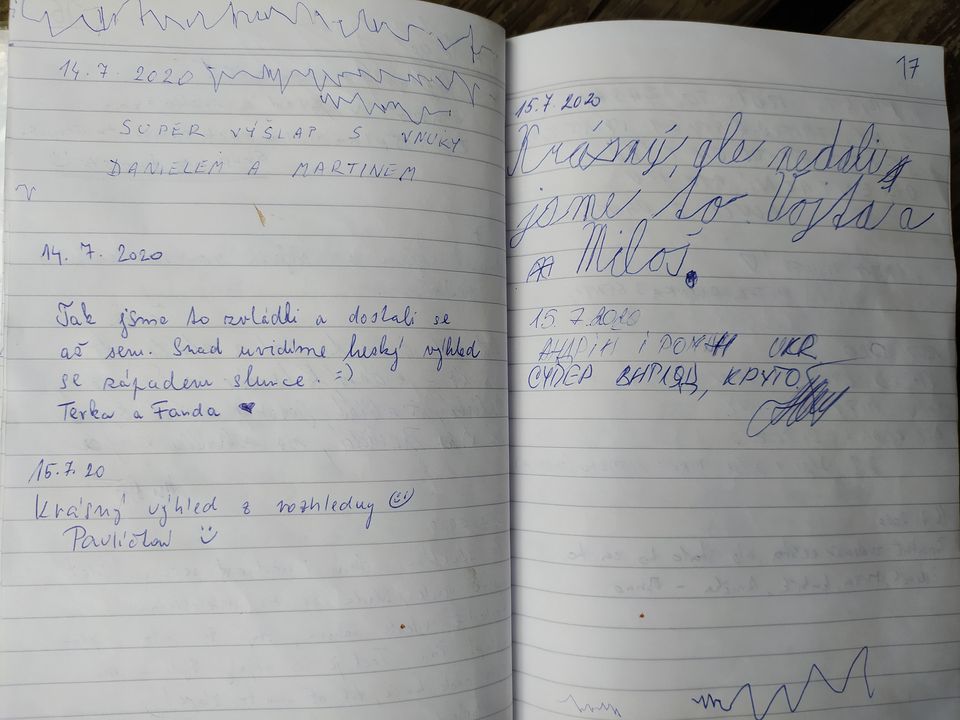 14.7. 2020
SUPER VÝŠLAP S VNUKY
DANIELEM A MARTINEM
14. 7. 2020
Tak jsme to zvládli a dostali se
až sem. Snad uvidíme heský výhled
se západem slunce. :=)
Terka a Fanda ♥
15.7.20
Krásný výhled z rozhledny ☺
Pavlíčkovi
17
15.7.2020
Krásný, ale nedali
jsme to Vojta a
Miloš.
15.7.2020
АНДРІЙ І РОМАН UKR
СУПЕР ВИГЛЯД, КРУТО